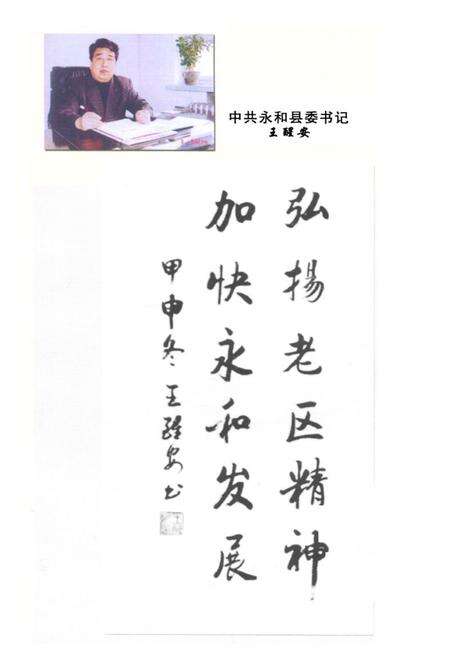 中共永和县委书记
王醒安
弘揚老区精神
加快永和发展
甲申冬王醒安书